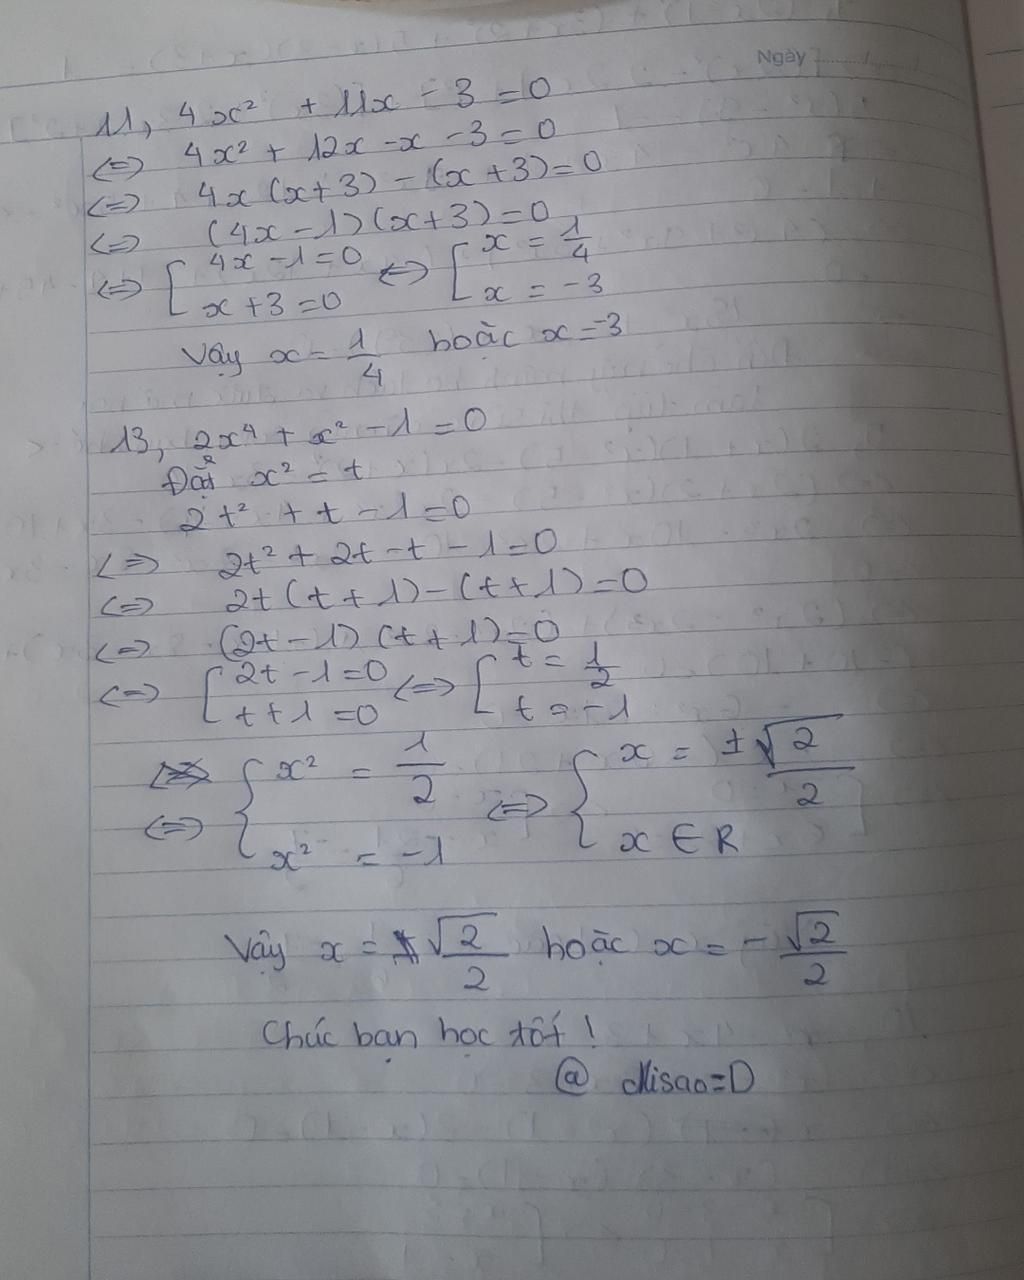 Ngày
11, 4x² + 11x - 3 = 0
<=> 4x² + 12x - x - 3 = 0
<=> 4x (x + 3) - (x + 3) = 0
<=> (4x - 1)(x + 3) = 0
<=> [ 4x - 1 = 0 <=> [ x = 1/4
x + 3 = 0 x = -3
Vậy x = 1/4 hoặc x = -3
13, 2x⁴ + x² - 1 = 0
Đặt x² = t
2t² + t - 1 = 0
<=> 2t² + 2t - t - 1 = 0
<=> 2t (t + 1) - (t + 1) = 0
<=> (2t - 1)(t + 1) = 0
<=> [ 2t - 1 = 0 <=> [ t = 1/2
t + 1 = 0 t = -1
<=> { x² = 1/2 <=> { x = ±√2/2
x² = -1 x ∈ R
Vậy x = √2/2 hoặc x = -√2/2
Chúc bạn học tốt !
@ Misao=D